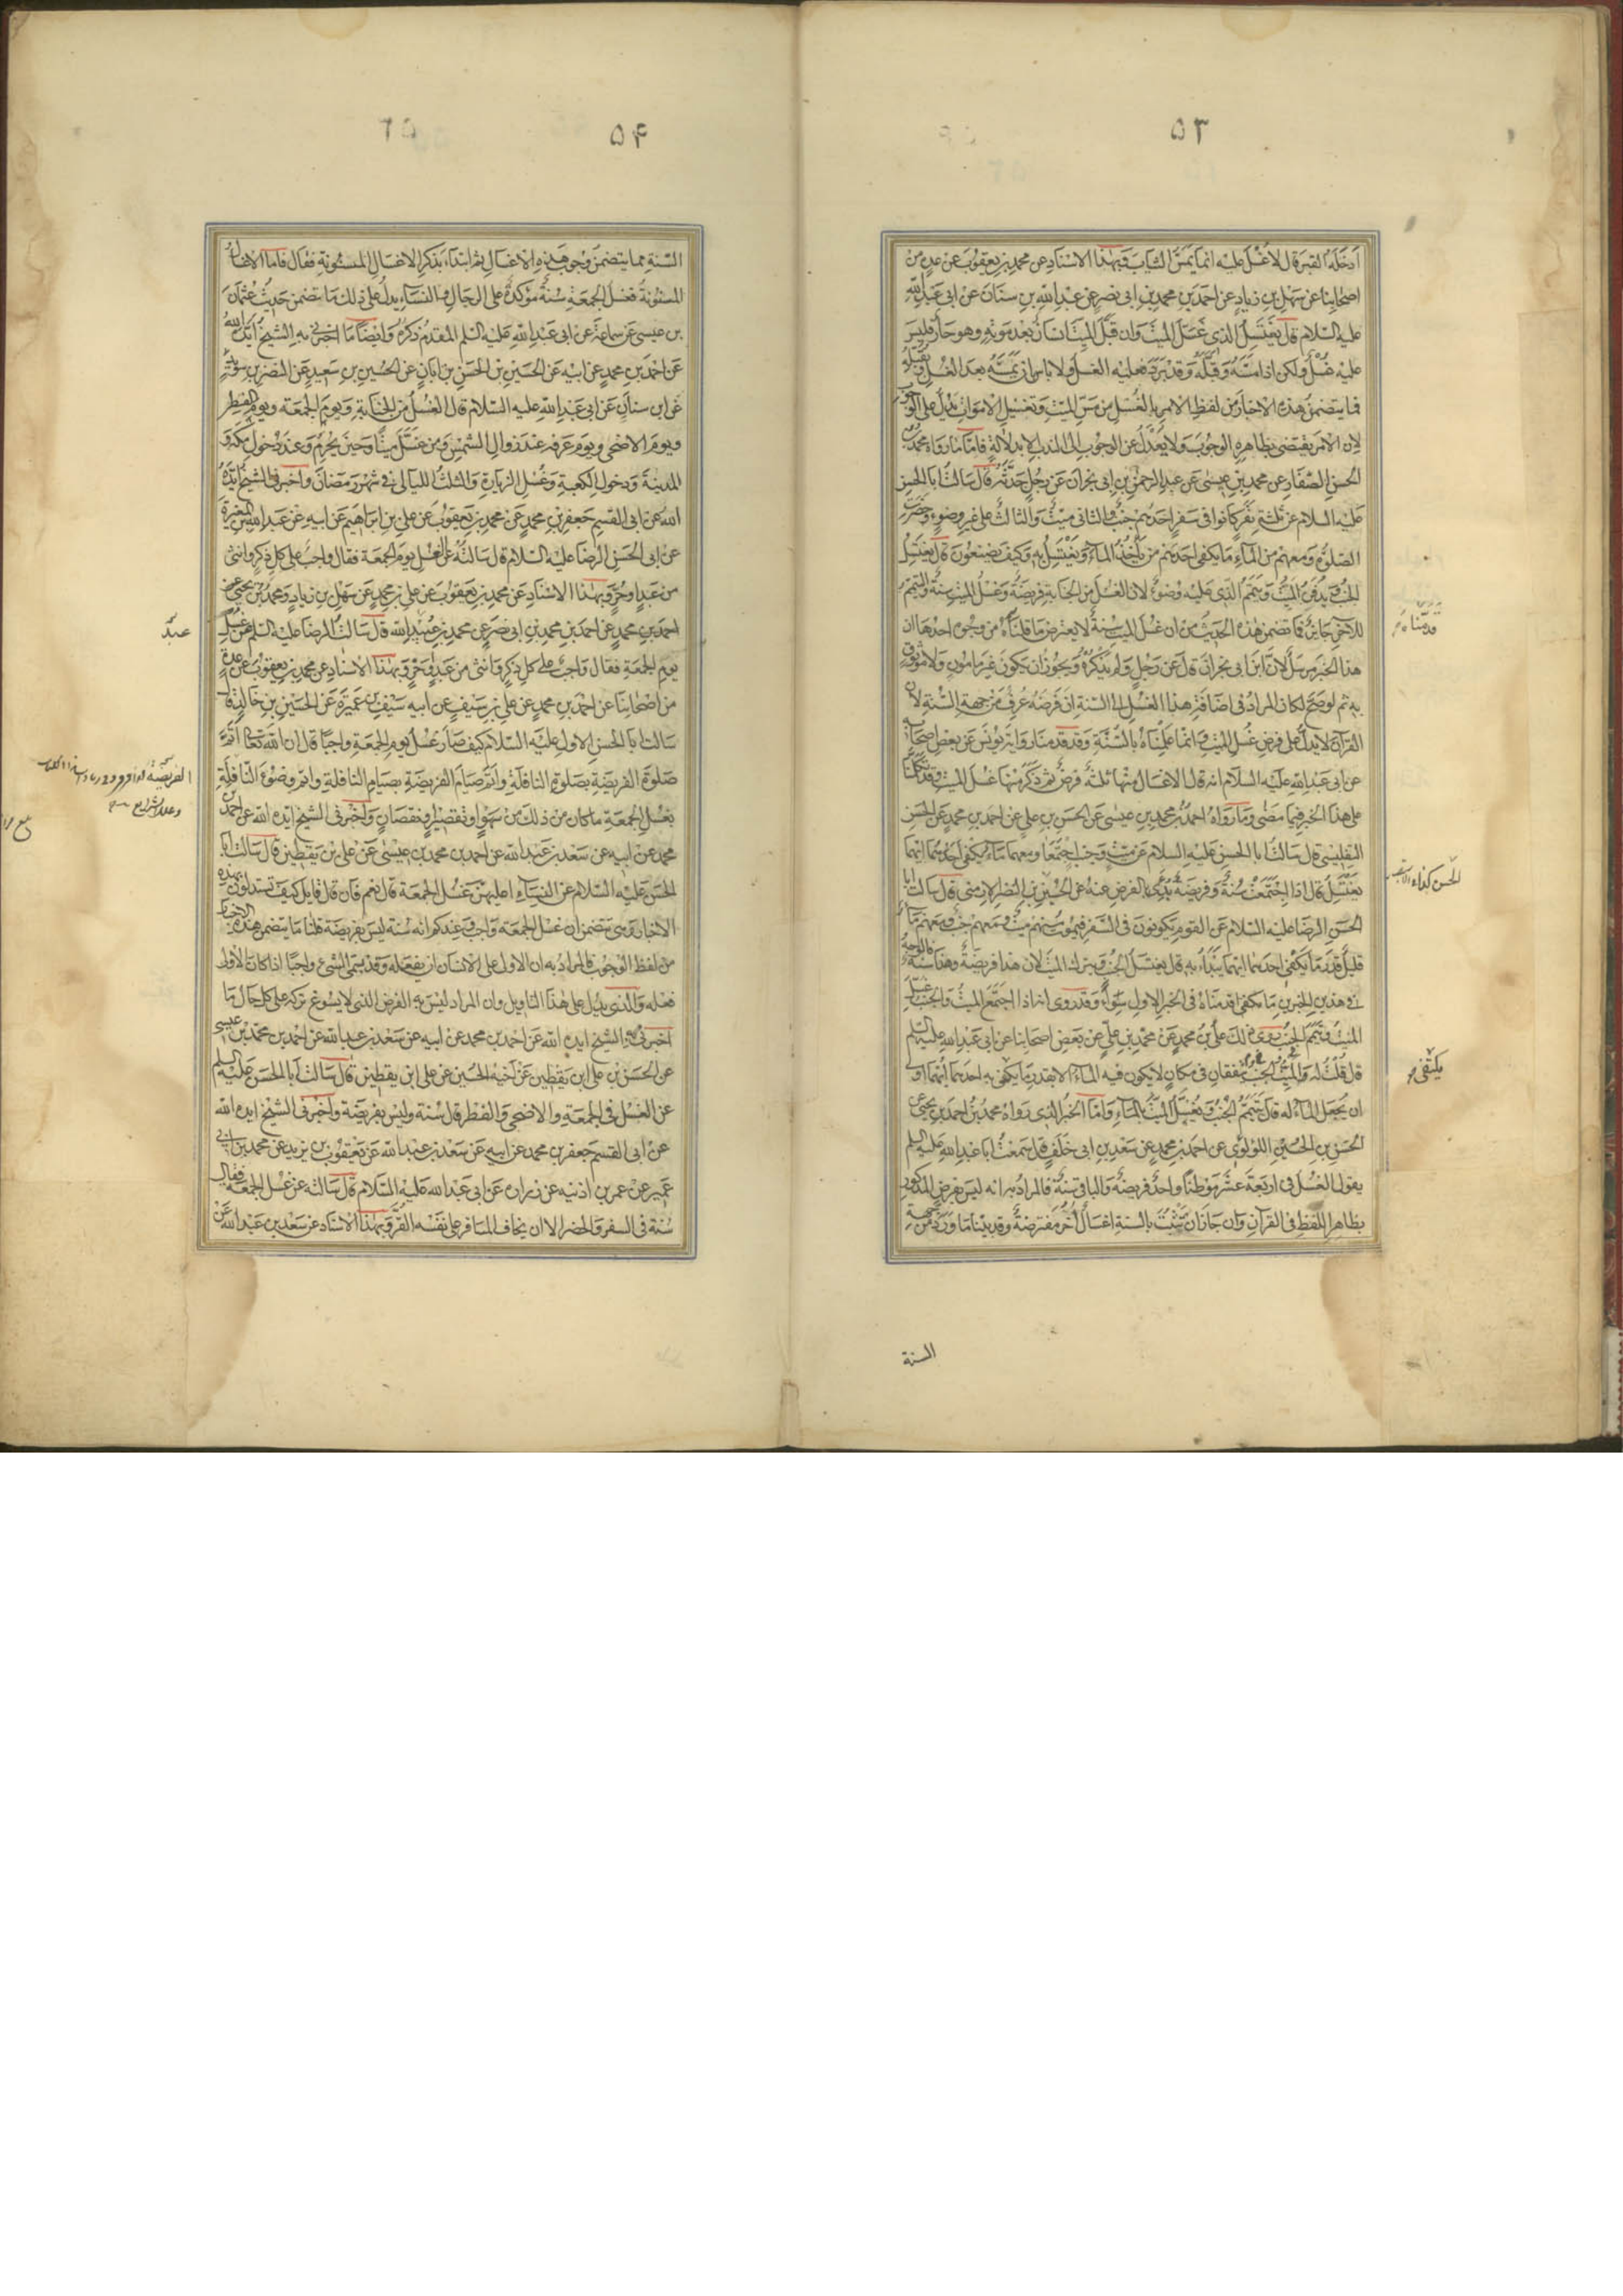 ٥٣
ادخله القبر قال لا غسل عليه انما يمس الثياب وبهذا الاسناد عن محمد بن يعقوب عن عدة من
اصحابنا عن سهل بن زياد عن احمد بن محمد بن ابي نصر عن عبد الله بن سنان عن ابي عبد الله
عليه السلام قال يغتسل الذي غسل الميت وان قبل الميت انسان بعد موته وهو حار فليس
عليه غسل ولكن اذا مسه وقبله وقد برد فعليه الغسل ولا باس ان يمسه بعد الغسل ويقبله
فما يتضمن هذه الاخبار من لفظ الامر بالغسل من مس الميت وتغسيل الاموات يدل على الوجوب
لان الامر يقتضي بظاهره الوجوب ولا يعدل عن الوجوب الى الندب الا بدلالة فاما ما رواه محمد بن
الحسن الصفار عن محمد بن عيسى عن عبد الرحمن بن ابي نجران عن رجل حدثه قال سالت ابا الحسن
عليه السلام عن ثلثة نفر كانوا في سفر احدهم جنب والثاني ميت والثالث على غير وضوء وحضرت
الصلوة ومعهم من الماء ما يكفي احدهم من ياخذ الماء ويغتسل به وكيف يصنعون قال يغتسل
الجنب ويدفن الميت ويتيمم الذي عليه وضوء لان الغسل من الجنابة فريضة وغسل الميت سنة والتيمم
للاخر جايز فما تضمن هذا الحديث من ان غسل الميت سنة لا يعترض ما قلناه من وجوه احدها ان
هذا الخبر مرسل لان ابن ابي نجران قال عن رجل ولم يذكره ويجوز ان يكون غير مامون ولا موثوق
به ثم لو صح لكان المراد في اضافة هذا الغسل الى السنة ان فرضه عرف من جهة السنة لان
القرآن لا يدل على فرض غسل الميت وانما علمناه بالسنة وقد قدمنا رواية يونس عن بعض اصحابه
عن ابي عبد الله عليه السلام انه قال الاغسال منها ثلثة فرض ثم ذكر منها غسل الميت وقد تكلمنا
على هذا الخبر فيما مضى وما رواه احمد بن محمد بن عيسى عن الحسن بن علي عن احمد بن محمد عن الحسن
التفليسي قال سالت ابا الحسن عليه السلام عن ميت وجنب اجتمعا ومعهما ماء يكفي احدهما ايهما
يغتسل قال اذا اجتمعت سنة وفريضة بدئ بالفرض عنه عن الحسين بن النضر الارمني قال سالت ابا
الحسن الرضا عليه السلام عن القوم يكونون في السفر فيموت منهم ميت ومعهم جنب ومعهم ماء
قليل قدر ما يكفي احدهما ايهما يبدا به قال يغتسل الجنب ويترك الميت لان هذا فريضة وهذا سنة فالوجه
في هذين الخبرين ما قدمناه في الخبر الاول سواء وقد روي انه اذا اجتمع الميت والجنب غسل
الميت وتيمم الجنب روى ذلك علي بن محمد عن محمد بن علي عن بعض اصحابنا عن ابي عبد الله عليه السلم
قال قلت له الميت والجنب يتفقان في مكان لا يكون فيه الماء الا بقدر ما يكتفي به احدهما ايهما اولى
ان يجعل الماء له قال يتيمم الجنب ويغسل الميت بالماء واما الخبر الذي رواه محمد بن احمد بن يحيى عن
الحسن بن الحسين اللؤلؤي عن احمد بن محمد عن سعد بن ابي خلف قال سمعت ابا عبد الله عليه السلم
يقول الغسل في اربعة عشر موطنا واحد فريضة والباقي سنة فالمراد به انه ليس بفرض المذكور
بظاهر اللفظ في القرآن وان جاز ان تثبت بالسنة اغسال اخر مفترضة وقد بينا ما ورد من جهة
السنة
قدمناه
يكتفي
٥٤
السنة مما يتضمن وجوب هذه الاغسال ثم ابتدا بذكر الاغسال المسنونة فقال فاما الاغسال
المسنونة فغسل الجمعة سنة مؤكدة على الرجال والنساء يدل على ذلك ما تضمن حديث عثمان
بن عيسى عن سماعة عن ابي عبد الله عليه السلم المقدم ذكره وايضا ما اخبرني به الشيخ ايده الله
عن احمد بن محمد عن ابيه عن الحسين بن الحسن بن ابان عن الحسين بن سعيد عن النضر بن سويد
عن ابن سنان عن ابي عبد الله عليه السلام قال الغسل من الجنابة ويوم الجمعة ويوم الفطر
ويوم الاضحى ويوم عرفه عند زوال الشمس ومن غسل ميتا وحين يحرم وعند دخول مكة و
المدينة ودخول الكعبة وغسل الزيارة والثلث الليالي في شهر رمضان واخبرني الشيخ ايده
الله عن ابي القسم جعفر بن محمد عن محمد بن يعقوب عن علي بن ابراهيم عن ابيه عن عبد الله بن المغيرة
عن ابي الحسن الرضا عليه السلام قال سالته عن الغسل يوم الجمعة فقال واجب على كل ذكر وانثى
من عبد او حر وبهذا الاسناد عن محمد بن يعقوب عن علي بن محمد عن سهل بن زياد ومحمد بن يحيى عن
احمد بن محمد عن احمد بن محمد بن ابي نصر عن محمد بن عبيد الله قال سالت الرضا عليه السلم عن غسل
يوم الجمعة فقال واجب على كل ذكر وانثى من عبد وحر وبهذا الاسناد عن محمد بن يعقوب عن عدة
من اصحابنا عن احمد بن محمد عن علي بن سيف عن ابيه سيف بن عميرة عن الحسين بن خالد قال
سالت ابا الحسن الاول عليه السلام كيف صار غسل يوم الجمعة واجبا قال ان الله تعالى اتم
صلوة الفريضة بصلوة النافلة واتم صيام الفريضة بصيام النافلة واتم وضوء النافلة
بغسل الجمعة ما كان من ذلك من سهو او تقصير او نقصان واخبرني الشيخ ايده الله عن احمد بن
محمد عن ابيه عن سعد بن عبد الله عن احمد بن محمد بن عيسى عن علي بن يقطين قال سالت ابا
الحسن عليه السلام عن النساء اعليهن غسل الجمعة قال نعم فان قال قايل كيف تستدلون بهذه
الاخبار وهي تتضمن ان غسل الجمعة واجب وعندكم انه سنة ليس بفريضة قلنا ما يتضمن هذه الاخبار
من لفظ الوجوب فالمراد به ان الاولى على الانسان ان يفعله وقد يسمى الشيء واجبا اذا كان الاولى
فعله والذي يدل على هذا التاويل وان المراد ليس به الفرض الذي لا يسوغ تركه على كل حال ما
اخبرني به الشيخ ايده الله عن احمد بن محمد عن ابيه عن سعد بن عبد الله عن احمد بن محمد بن عيسى
عن الحسن بن علي ابن يقطين عن اخيه الحسين عن علي ابن يقطين قال سالت ابا الحسن عليه السلم
عن الغسل في الجمعة والاضحى والفطر قال سنة وليس بفريضة واخبرني الشيخ ايده الله
عن ابي القسم جعفر بن محمد عن ابيه عن سعد بن عبد الله عن يعقوب بن يزيد عن محمد بن ابي
عمير عن عمر بن اذنيه عن زراره عن ابي عبد الله عليه السلام قال سالته عن غسل الجمعة فقال
سنة في السفر والحضر الا ان يخاف المسافر على نفسه القر وبهذا الاسناد عن سعد بن عبد الله عن
الفريضة